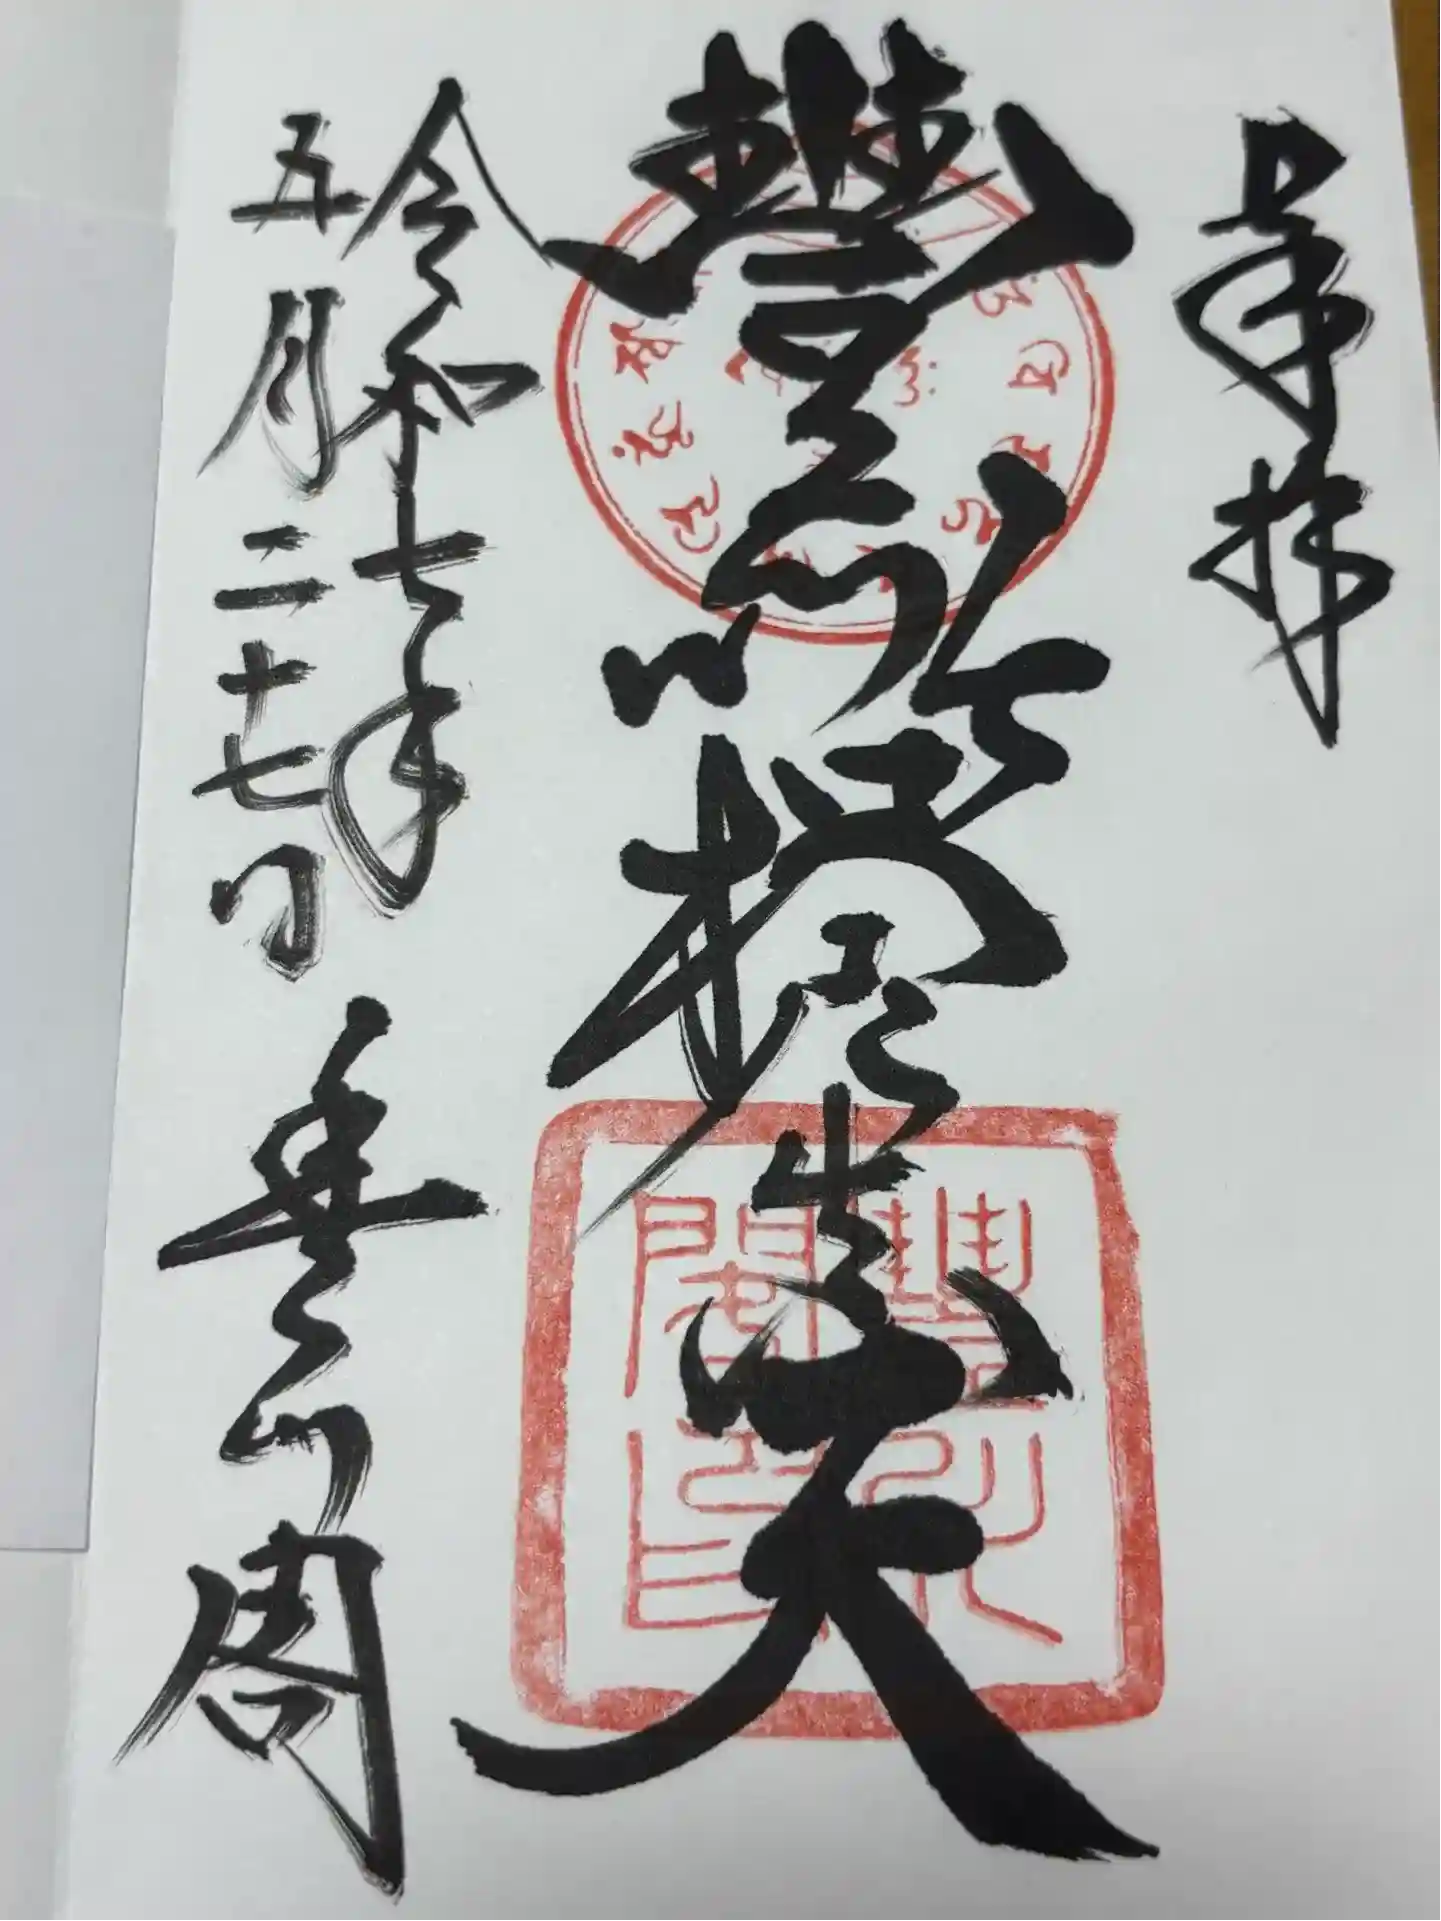 奉拝
豐川吒枳尼眞天
令和七年
五月二十七日
豊川閣
豐川
閣印